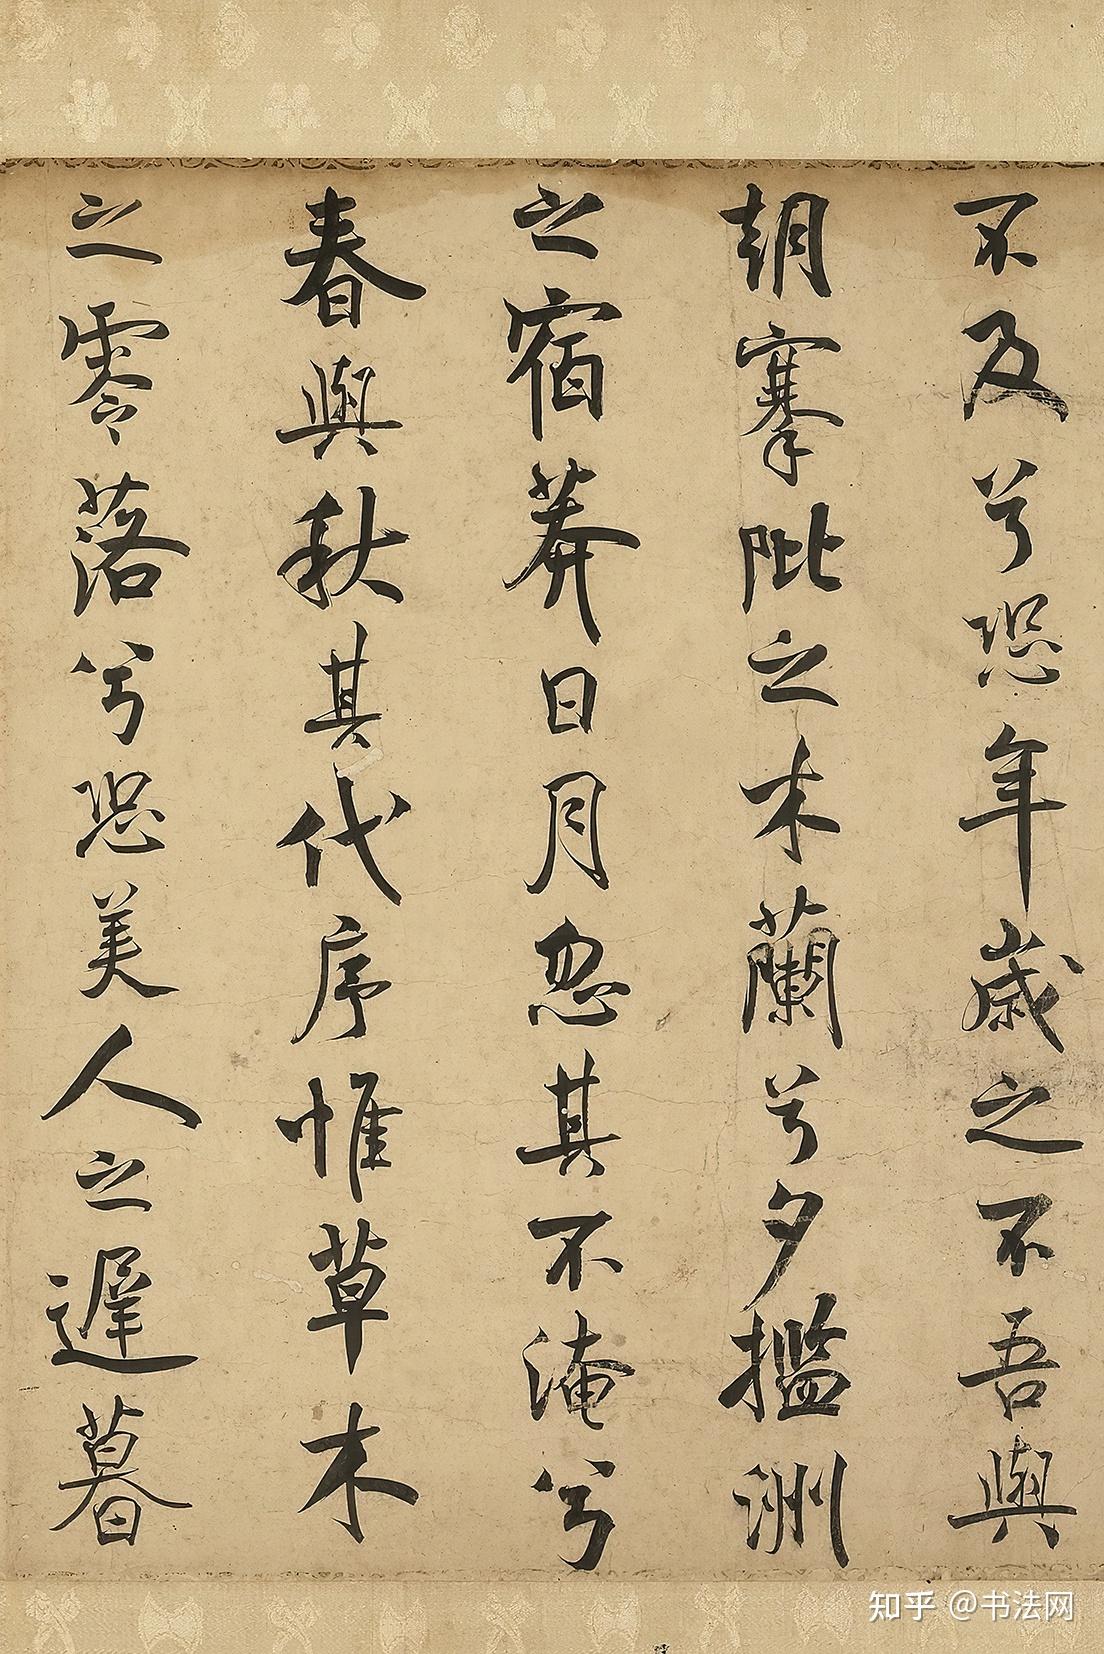 不及兮恐年歲之不吾與
朝搴阰之木蘭兮夕擥洲
之宿莽日月忽其不淹兮
春與秋其代序惟草木
之零落兮恐美人之遲暮
知乎 @书法网